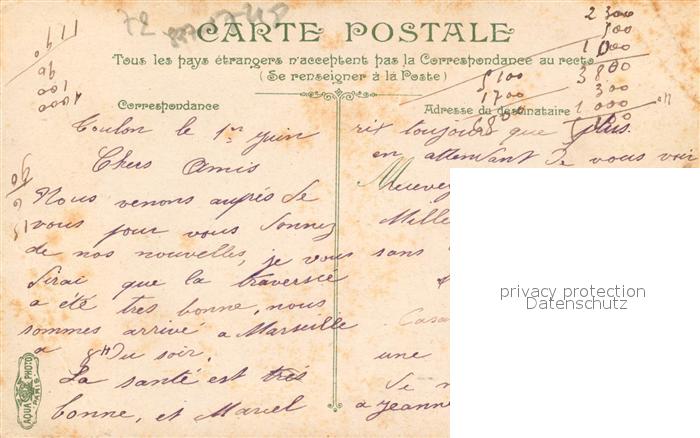 CARTE POSTALE
Tous les pays étrangers n'acceptent pas la Correspondance au recto
(Se renseigner à la Poste)
Correspondance
Adresse du destinataire
72
2300
500
1000
3800
300
1000
5100
1700
6800
Toulon le 1er Juin
Chers Amis
Nous venons auprés de
vous pour vous donnez
de nos nouvelles, je vous
dirai que la traversée
a été tres bonne, nous
sommes arrivé a Marseille
a 8H Du soir.
La santé est trés
bonne, et Marcel
rix toujours que plus.
en attendant De vous voir
Recevez
Mille
sans
Casa
une
De
a Jeanne
AQUA PHOTO
PARIS
privacy protection
Datenschutz